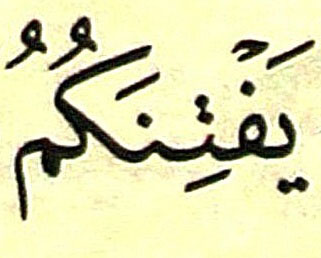 يَفْتِنَكُمُ